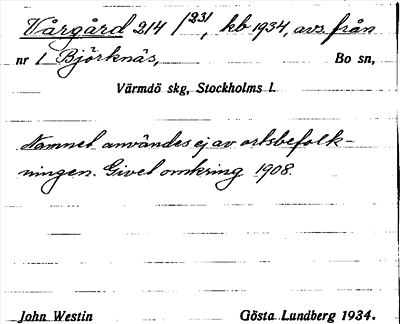 Vårgård 214 /231, kb 1934, avs. från
nr 1 Björknäs, Bo sn,
Värmdö skg, Stockholms l.
Namnet användes ej av ortsbefolk-
ningen. Givet omkring 1908.
John Westin Gösta Lundberg 1934.